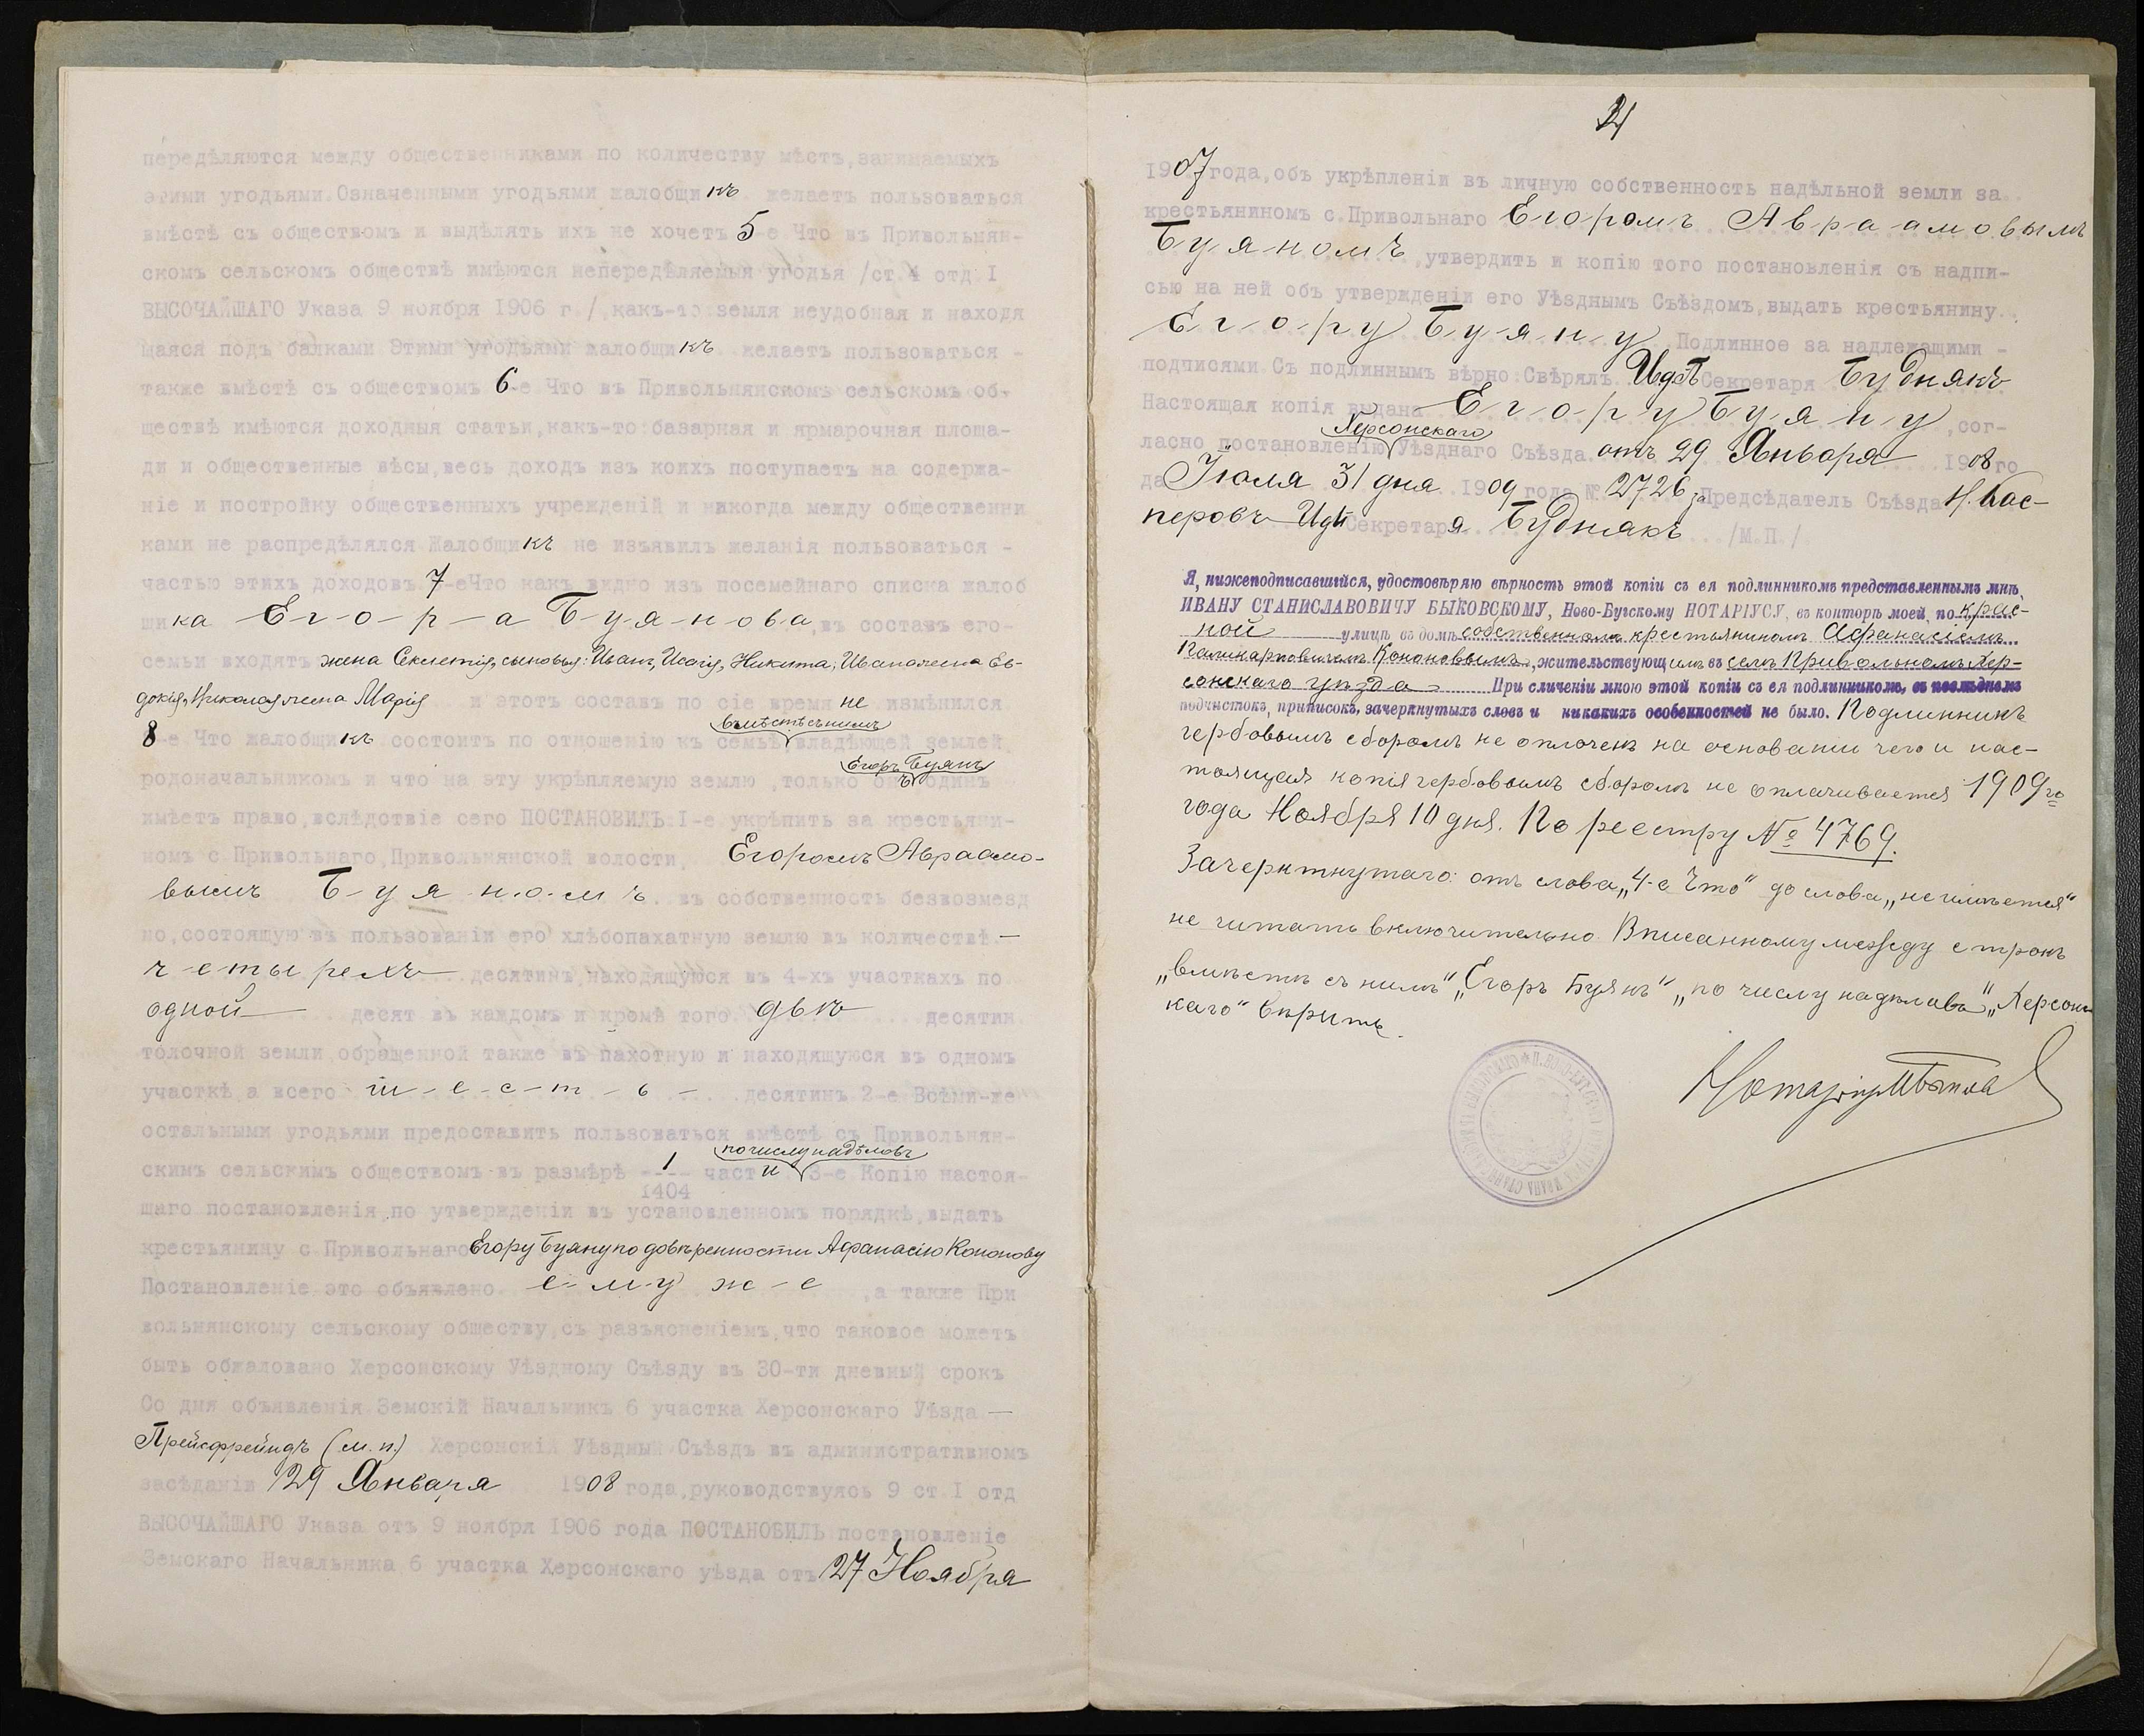 передѣляются между общественниками по количеству мѣстъ, занимаемыхъ
этими угодьями. Означенными угодьями жалобщикъ желаетъ пользоваться
вмѣстѣ съ обществомъ и выдѣлять ихъ не хочетъ 5-е Что въ Привольнян-
скомъ сельскомъ обществѣ имѣются непередѣляемыя угодья /ст. 4 отд I
ВЫСОЧАЙШАГО Указа 9 ноября 1906 г./, какъ-то земля неудобная и находя
щаяся подъ балками Этими угодьями жалобщикъ желаетъ пользоваться -
также вмѣстѣ съ обществомъ 6-е Что въ Привольнянскомъ сельскомъ об-
ществѣ имѣются доходныя статьи, какъ-то: базарная и ярмарочная площа-
ди и общественные вѣсы, весь доходъ изъ коихъ поступаетъ на содержа-
ніе и постройку общественныхъ учрежденій и никогда между общественни
ками не распредѣлялся Жалобщикъ не изъявилъ желанія пользоваться -
частью этихъ доходовъ 7-е Что какъ видно изъ посемейнаго списка жалоб
щика Е-г-о-р-а Б-у-я-н-о-в-а, въ составъ его-
семьи входятъ жена Секлетія, сыновья: Иванъ, Исаія, Никита, Ивана жена Ев-
докія, Николая жена Марія и этотъ составъ по сіе время не измѣнился
вмѣстѣ съ нимъ
8-е Что жалобщикъ состоитъ по отношенію къ семьѣ владѣющей землей
Егоръ Буянъ
родоначальникомъ и что на эту укрѣпляемую землю, только онъ одинъ
имѣетъ право, вслѣдствіе сего ПОСТАНОВИЛЪ: I-е укрѣпить за крестьяни-
номъ с. Привольнаго, Привольнянской волости, Егоромъ Авраамо-
вымъ Б-у-я-н-о-м-ъ въ собственность безвозмезд
но, состоящую въ пользованіи его хлѣбопахатную землю въ количествѣ —
четырехъ десятинъ, находящуюся въ 4-хъ участкахъ по
одной десят въ каждомъ и кромѣ того двѣ десятин
толочной земли, обращенной также въ пахотную и находящуюся въ одномъ
участкѣ а всего ш-е-с-т-ь- десятинъ 2-е Всѣми-же
остальными угодьями предоставить пользоваться вмѣстѣ съ Привольнян-
по числу надѣловъ
скимъ сельскимъ обществомъ въ размѣрѣ 1/1404 части 3-е Копію настоя-
щаго постановленія, по утвержденіи въ установленномъ порядкѣ, выдать
крестьянину с Привольнаго Егору Буяну по довѣренности Афанасію Кононову
Постановленіе это объявлено е-м-у ж-е, а также При
вольнянскому сельскому обществу, съ разъясненіемъ, что таковое можетъ
быть обжаловано Херсонскому Уѣздному Съѣзду въ 30-ти дневный срокъ
Со дня объявленія Земскій Начальникъ 6 участка Херсонскаго Уѣзда —
Прейсфрейндъ (м. п.) Херсонскій Уѣздный Съѣздъ въ административномъ
засѣданіи 29 Января 1908 года, руководствуясь 9 ст I отд
ВЫСОЧАЙШАГО Указа отъ 9 ноября 1906 года ПОСТАНОВИЛЪ постановленіе
Земскаго Начальника 6 участка Херсонскаго уѣзда отъ 27 Ноября
1907 года, объ укрѣпленіи въ личную собственность надѣльной земли за
крестьяниномъ с. Привольнаго Егоромъ Авраамовымъ
Буяномъ, утвердить и копію того постановленія съ надпи-
сью на ней объ утвержденіи его Уѣзднымъ Съѣздомъ, выдать крестьянину
Е-г-о-р-у Б-у-я-н-у Подлинное за надлежащими -
подписями Съ подлиннымъ вѣрно: Свѣрялъ Ид. Секретаря Буднякъ
Настоящая копія выдана Е-г-о-р-у Б-у-я-н-у, сог-
Херсонскаго
ласно постановленію Уѣзднаго Съѣзда отъ 29 Января 1908 го
да Іюля 31 дня 1909 года № 2726, Предсѣдатель Съѣзда Н. Кас-
перовъ Ид Секретаря Буднякъ /М.П./
Я, нижеподписавшійся, удостовѣряю вѣрность этой копіи съ ея подлинникомъ представленнымъ мнѣ,
ИВАНУ СТАНИСЛАВОВИЧУ БЫКОВСКОМУ, Ново-Бугскому НОТАРІУСУ, въ конторѣ моей, по Крас-
ной улицѣ въ домѣ собственномъ крестьяниномъ Афанасіемъ
Поликарповичемъ Кононовымъ, жительствующимъ въ селѣ Привольномъ Хер-
сонскаго уѣзда При сличеніи мною этой копіи съ ея подлинникомъ, въ послѣднемъ
подчистокъ, приписокъ, зачеркнутыхъ словъ и никакихъ особенностей не было. Подлинникъ
гербовымъ сборомъ не оплоченъ на основаніи чего и нас-
тоящая копія гербовымъ сборомъ не оплачивается 1909 го
года Ноября 10 дня. По реестру № 4769.
Зачеркнутаго: отъ слова „4-е Что" до слова „не имѣется"
не читать включительно Вписанному между строкъ
„вмѣстѣ съ нимъ" „Егоръ Буянъ" „по числу надѣловъ" „Херсонс
каго" вѣрить.